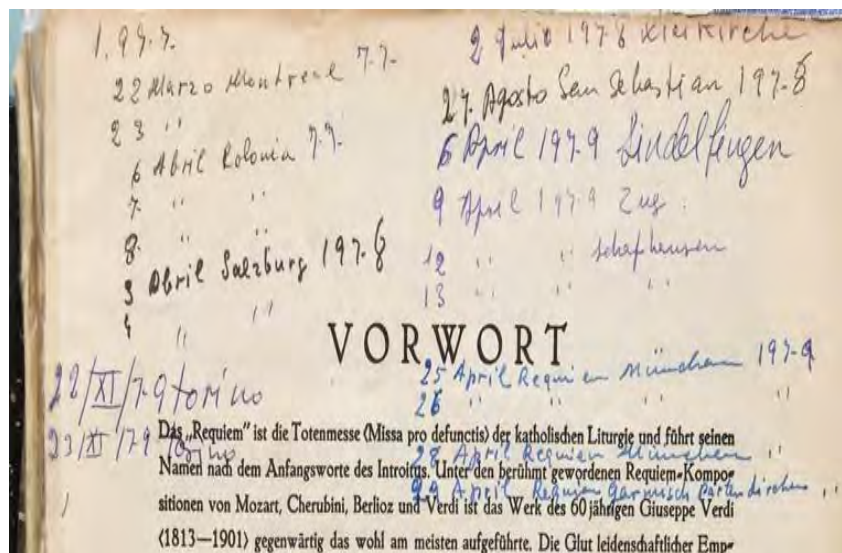 1.977.
22 Marzo Montreal 77.
23 "
6 Abril Kolonia 77.
7. " "
8. " "
3 Abril Salzburg 1978
4 " "
22/XI/79 torino
23/XI/79 torino
2 Julio 1978
27. Agosto San Sebastian 1978
6 April 1979 Sindelfingen
9 April 1979 Zug.
12 " " Schafhausen
13 " " "
25 April Requiem München 1979
26 " " " "
28 April Requiem München "
29 April Requiem Garmisch Partenkirchen "
VORWORT
Das „Requiem" ist die Totenmesse (Missa pro defunctis) der katholischen Liturgie und führt seinen
Namen nach dem Anfangsworte des Introitus. Unter den berühmt gewordenen Requiem-Kompo-
sitionen von Mozart, Cherubini, Berlioz und Verdi ist das Werk des 60 jährigen Giuseppe Verdi
(1813—1901) gegenwärtig das wohl am meisten aufgeführte. Die Glut leidenschaftlicher Emp-